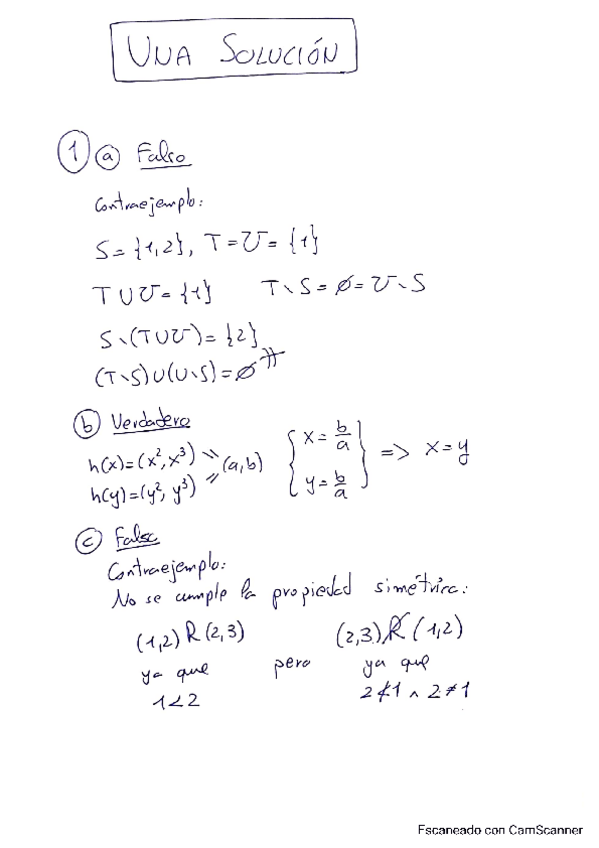 UNA SOLUCIÓN
1 a Falso
Contraejemplo:
S = {1,2}, T = U = {1}
T ∪ U = {1} T \ S = ∅ = U \ S
S \ (T ∪ U) = {2}
(T \ S) ∪ (U \ S) = ∅ ≠
b Verdadero
h(x) = (x², x³) = (a,b) { x = b/a
h(y) = (y², y³) = y = b/a } => x = y
c Falso
Contraejemplo:
No se cumple la propiedad simétrica:
(1,2) R (2,3) (2,3) R̸ (1,2)
ya que pero ya que
1 < 2 2 ≮ 1 ∧ 2 ≠ 1
Escaneado con CamScanner